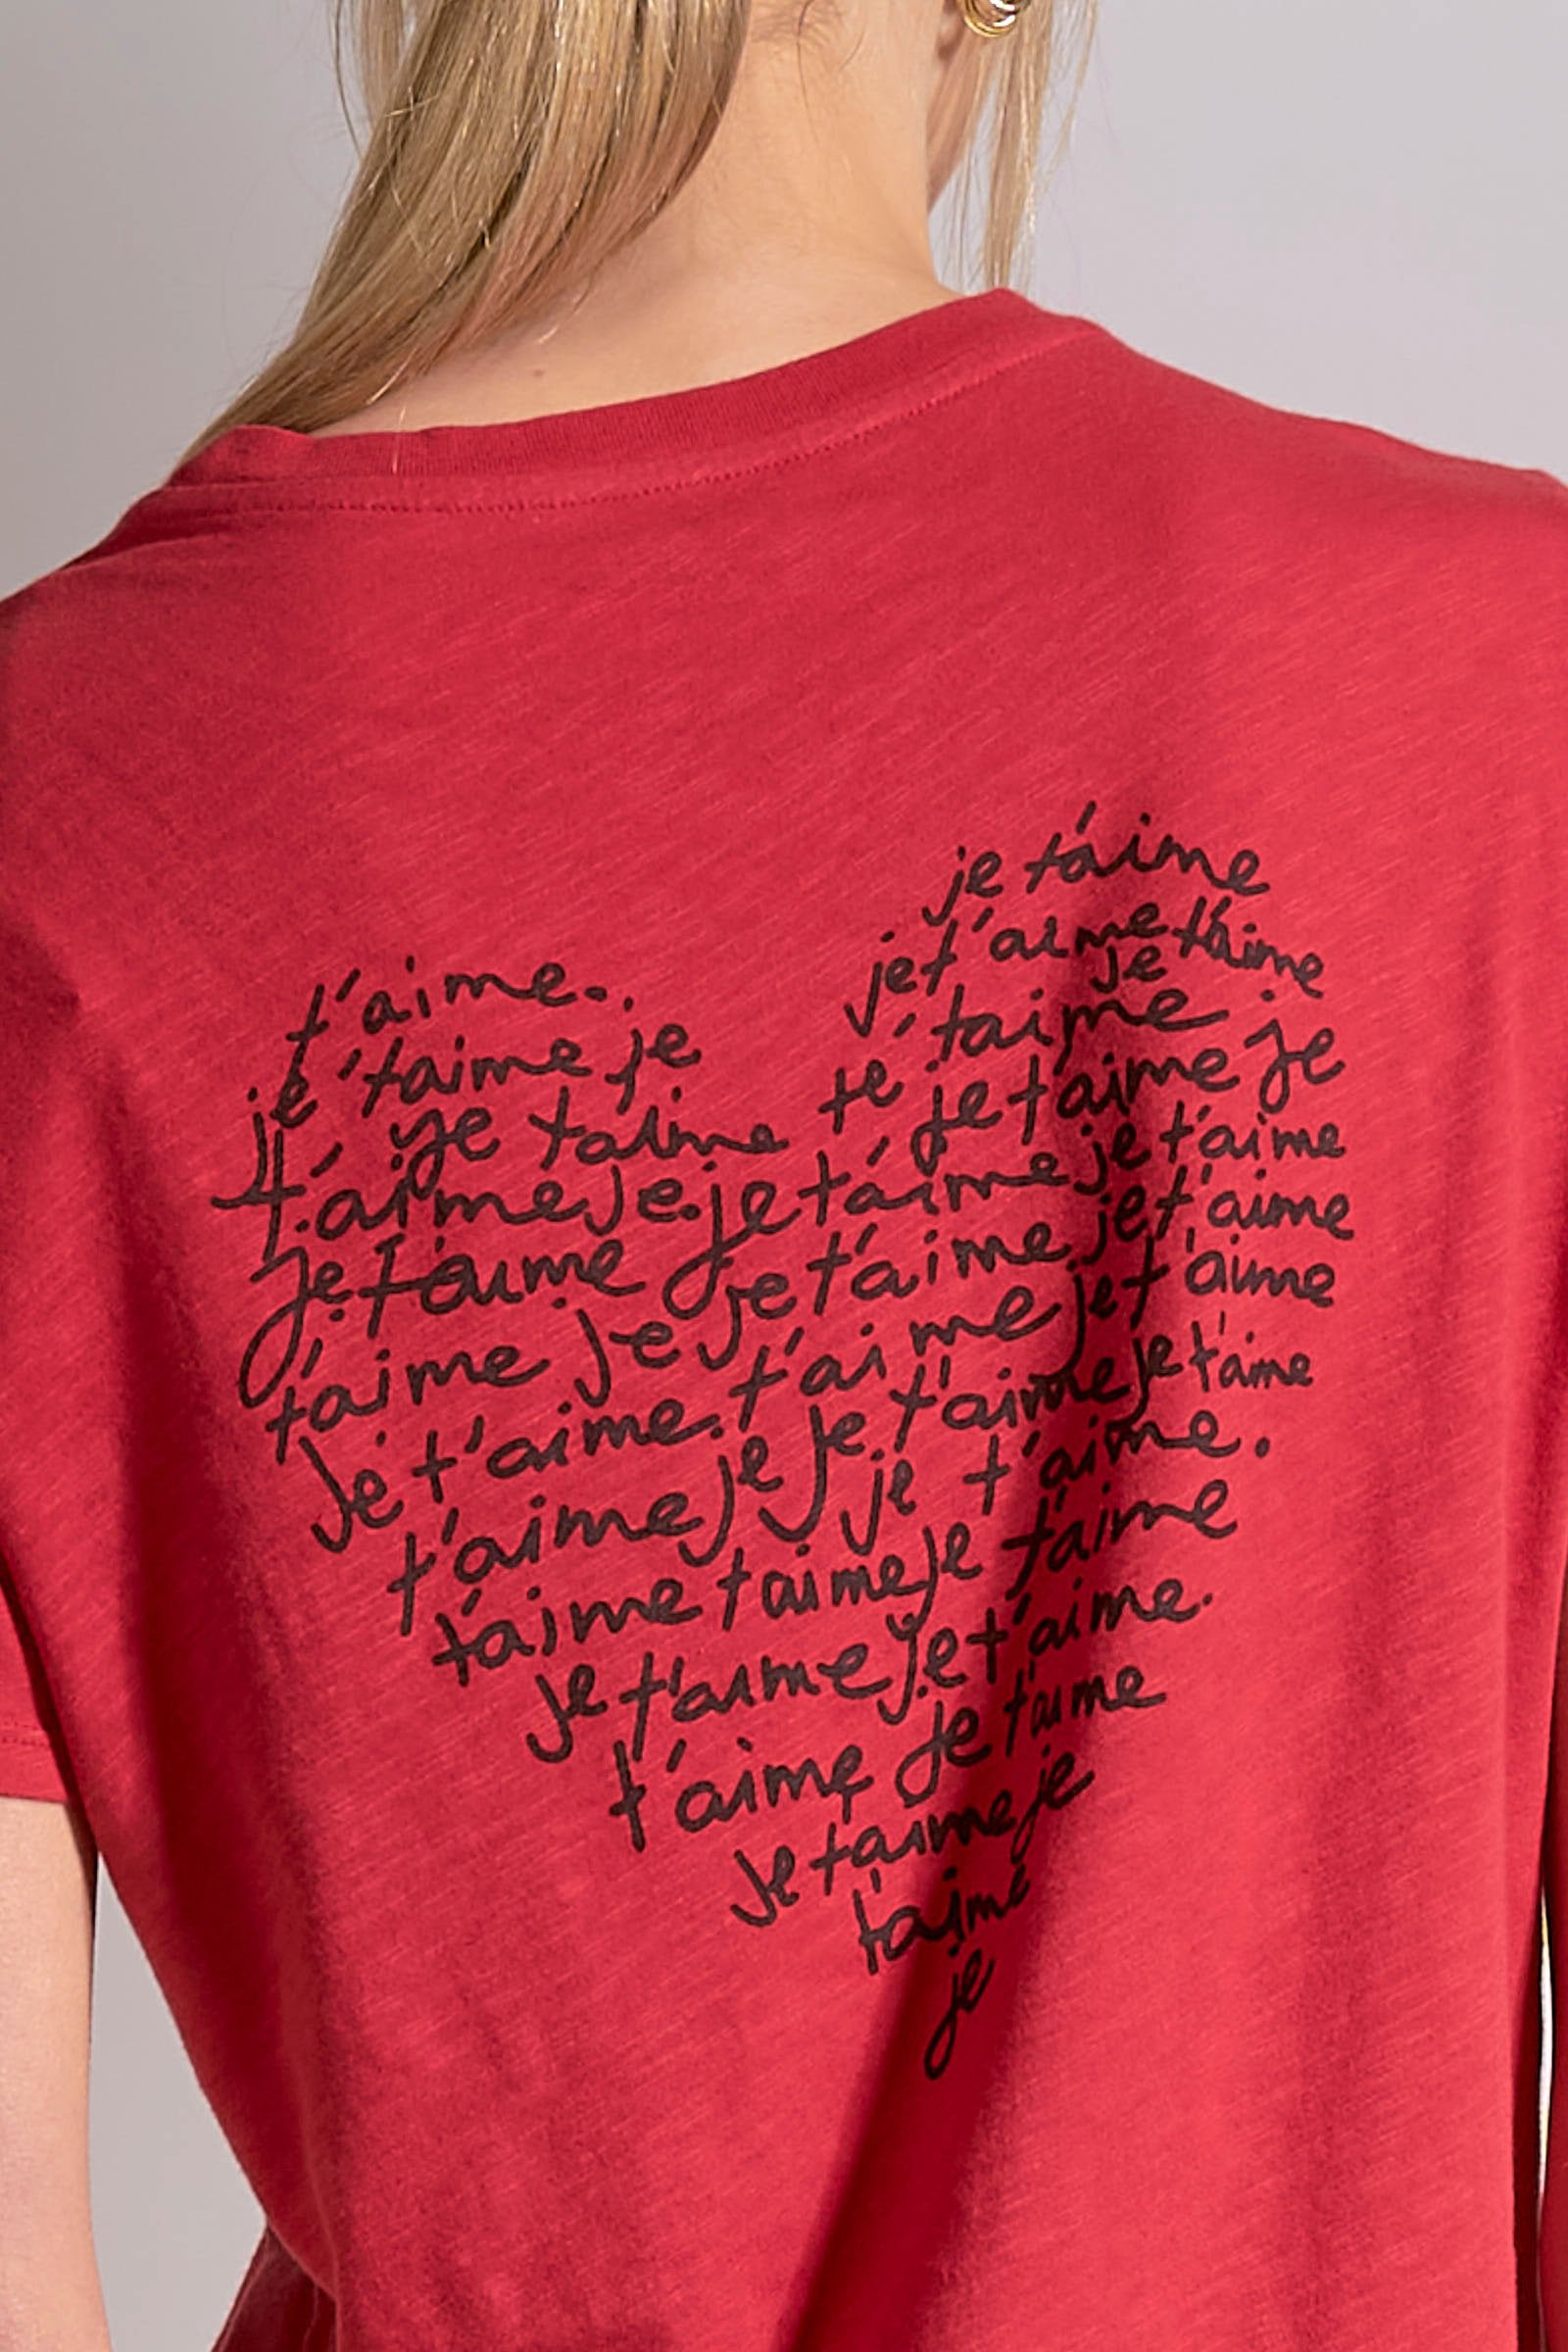 je t'aime
je t'aime t'aime
je
t'aime..
je t'aime
je 'taime je
je t'aime je
je taime
t'aime je. je t'aime je t'aime
je t'aime je t'aime je t'aime
t'aime je je t'aime je t'aime
je t'aime. t'aime je t'aime
t'aime je je t'aime je t'aime
je t'aime.
t'aime t'aime je t'aime
je t'aime je t'aime.
t'aime je t'aime
je t'aime je
t'aime
je